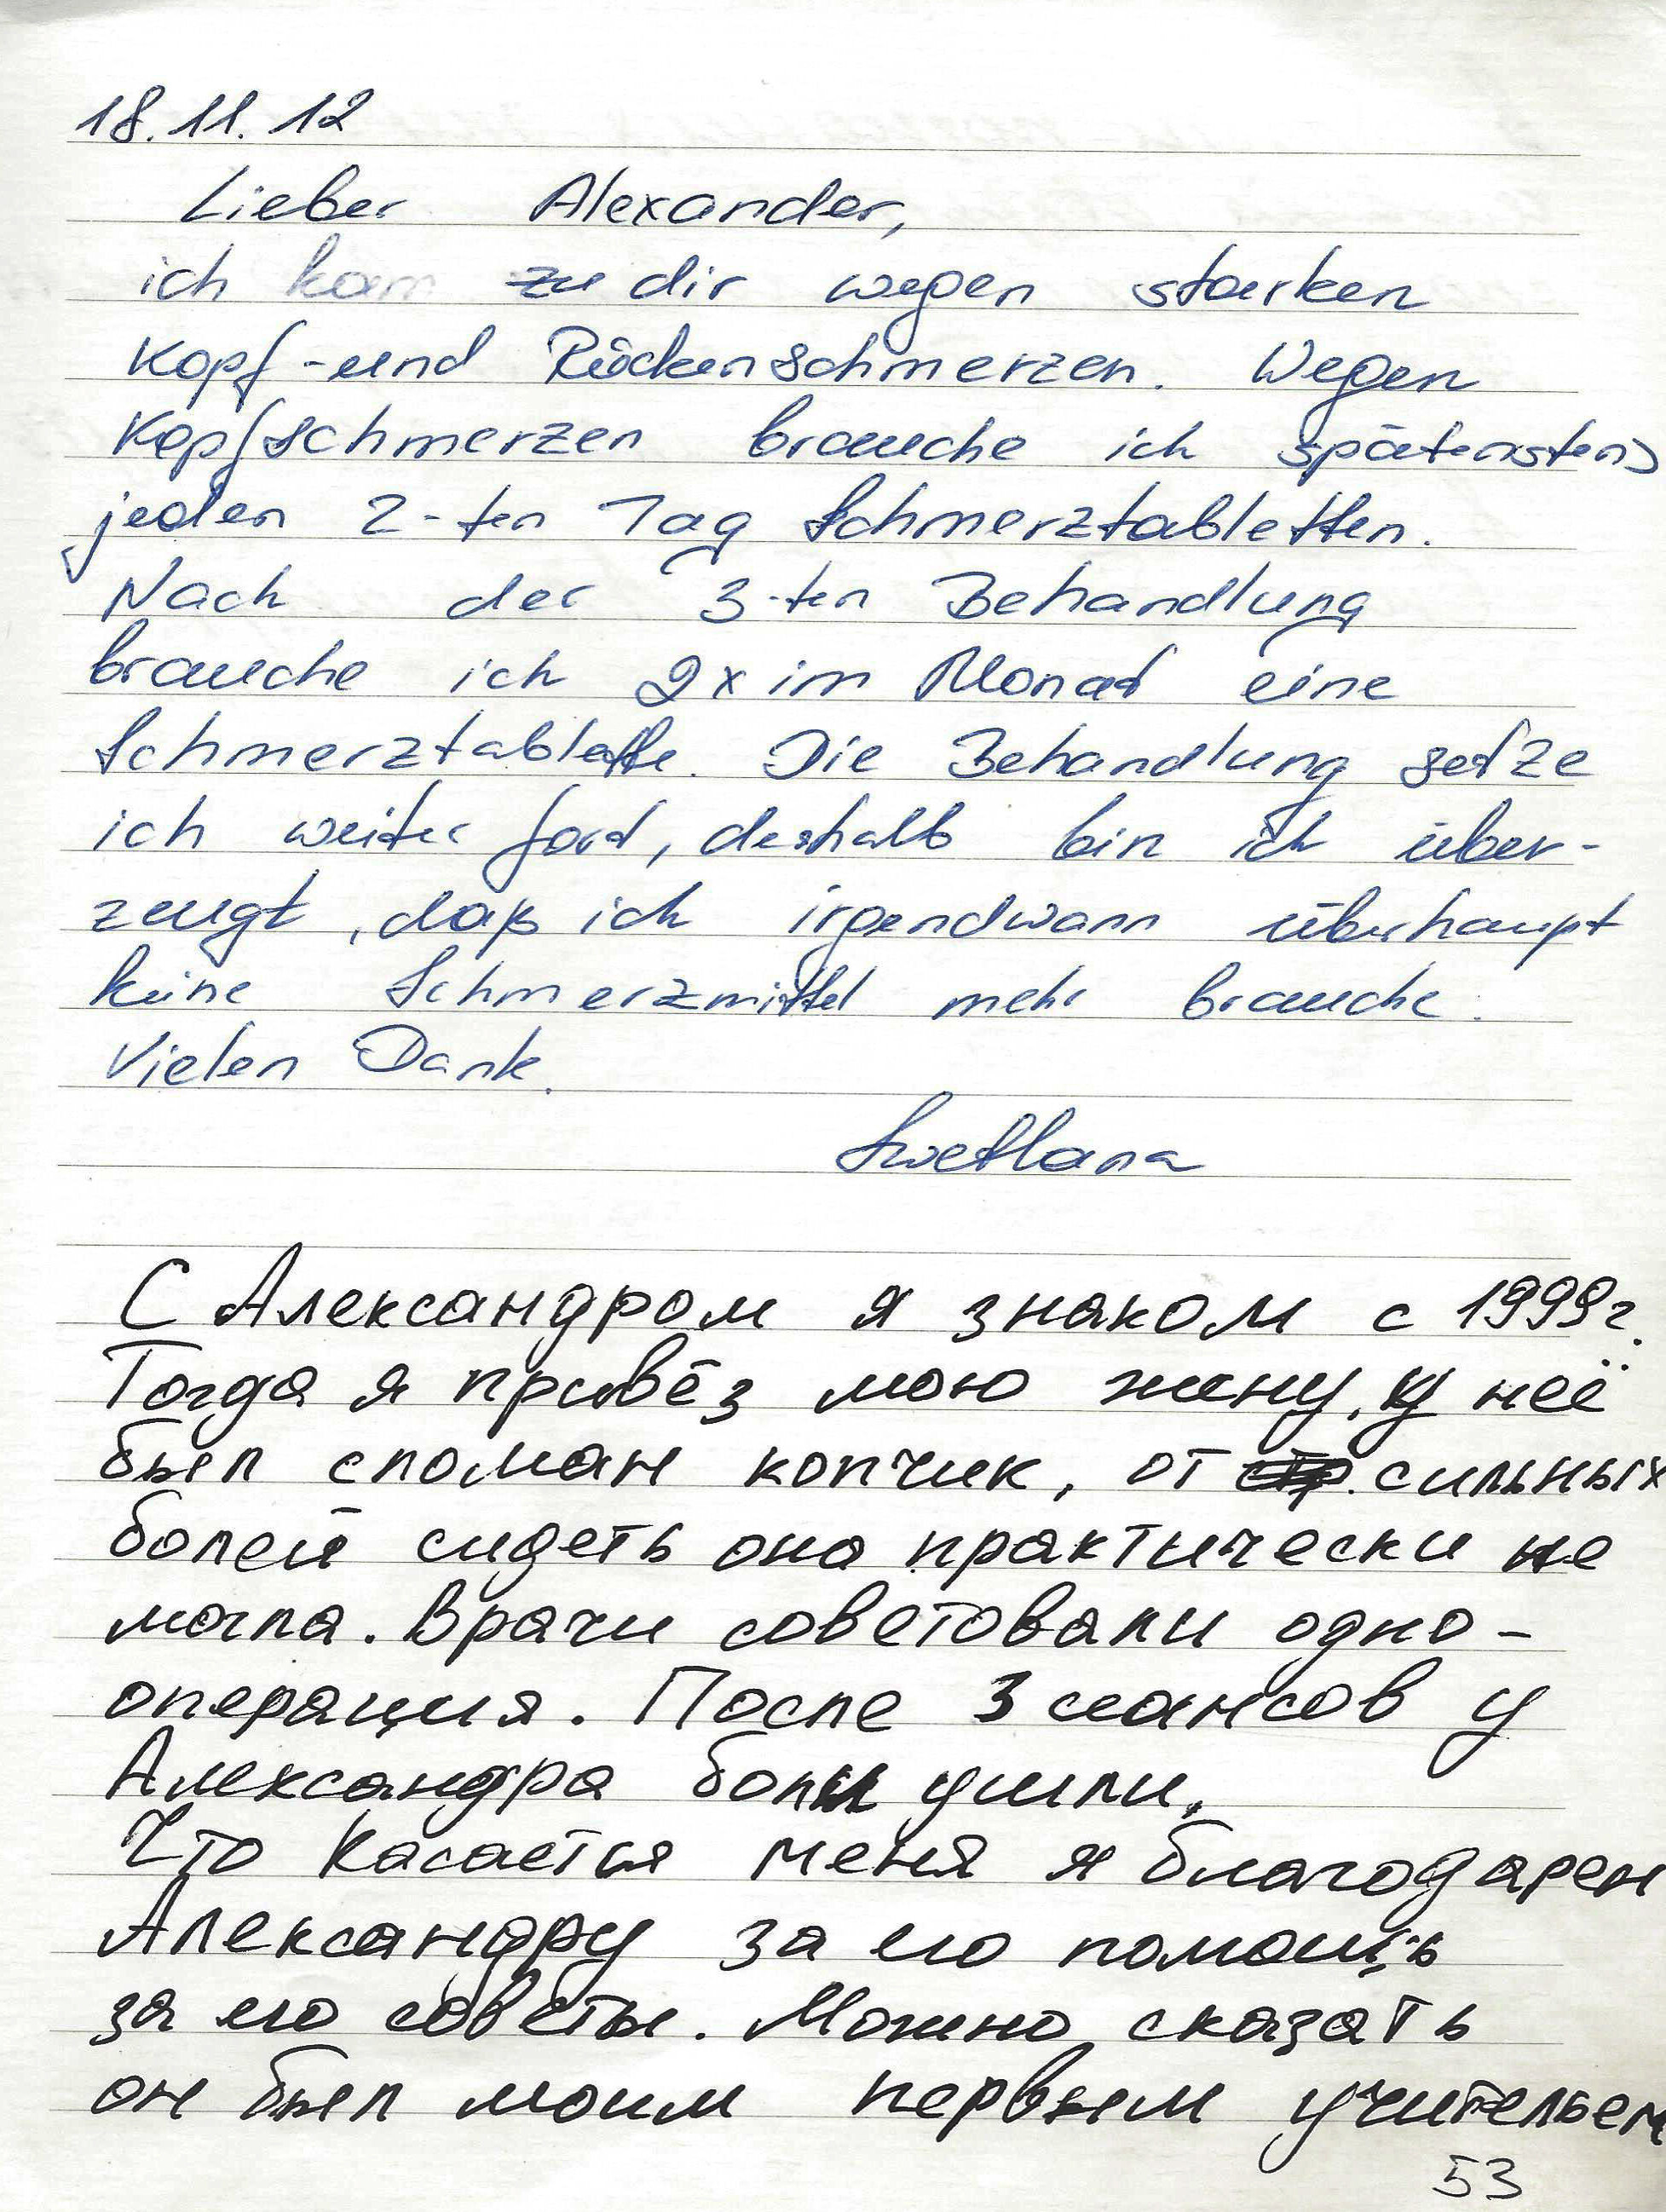 18.11.12
Lieber Alexander,
ich kam zu dir wegen starken
Kopf-und Rückenschmerzen. Wegen
Kopfschmerzen brauche ich spätenstens
jeden 2-ten Tag Schmerztabletten.
Nach der 3-ten Behandlung
brauche ich 2x im Monat eine
Schmerztablette. Die Behandlung setze
ich weiter fort, deshalb bin ich über-
zeugt, daß ich irgendwann überhaupt
keine Schmerzmittel mehr brauche.
Vielen Dank.
Swetlana
С Александром я знаком с 1999г.
Тогда я привёз мою жену, у неё
был сломан копчик, от сильных
болей сидеть она практически не
могла. Врачи советовали одно-
операция. После 3 сеансов у
Александра боли ушли.
Что касается меня я благодарен
Александру за его помощь
за его советы. Можно сказать
он был моим первым учительем
53